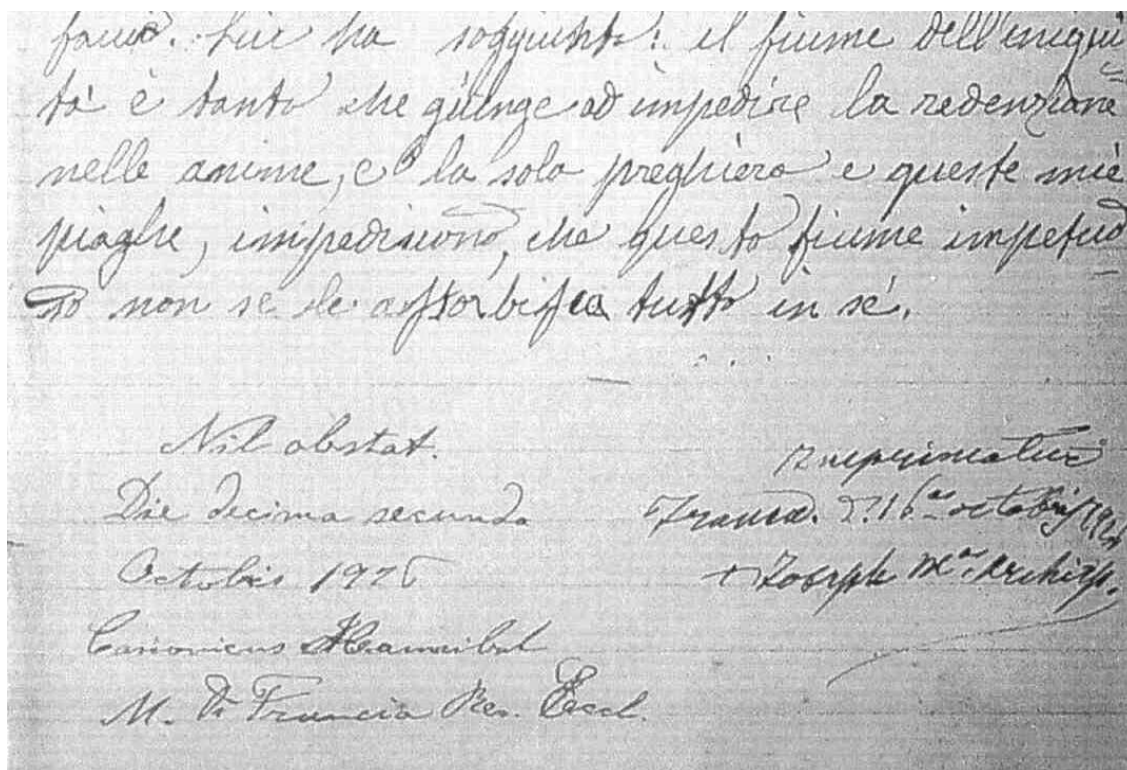 facció. Lui ha soggiunto: il fiume dell'iniqui
tà è tanto che giunge ad impedire la redenzione
nelle anime, e la sola preghiera e queste mie
piaghe, impediscono, che questo fiume impetuo
so non se le assorbisca tutto in sé.
Nil obstat.
Die decima secunda
Octobris 1926
Canonicus Hannibal
M. Di Francia Rev. Eccl.
Imprimatur
octobris 1926
+ Joseph Mᵃ Archiep.